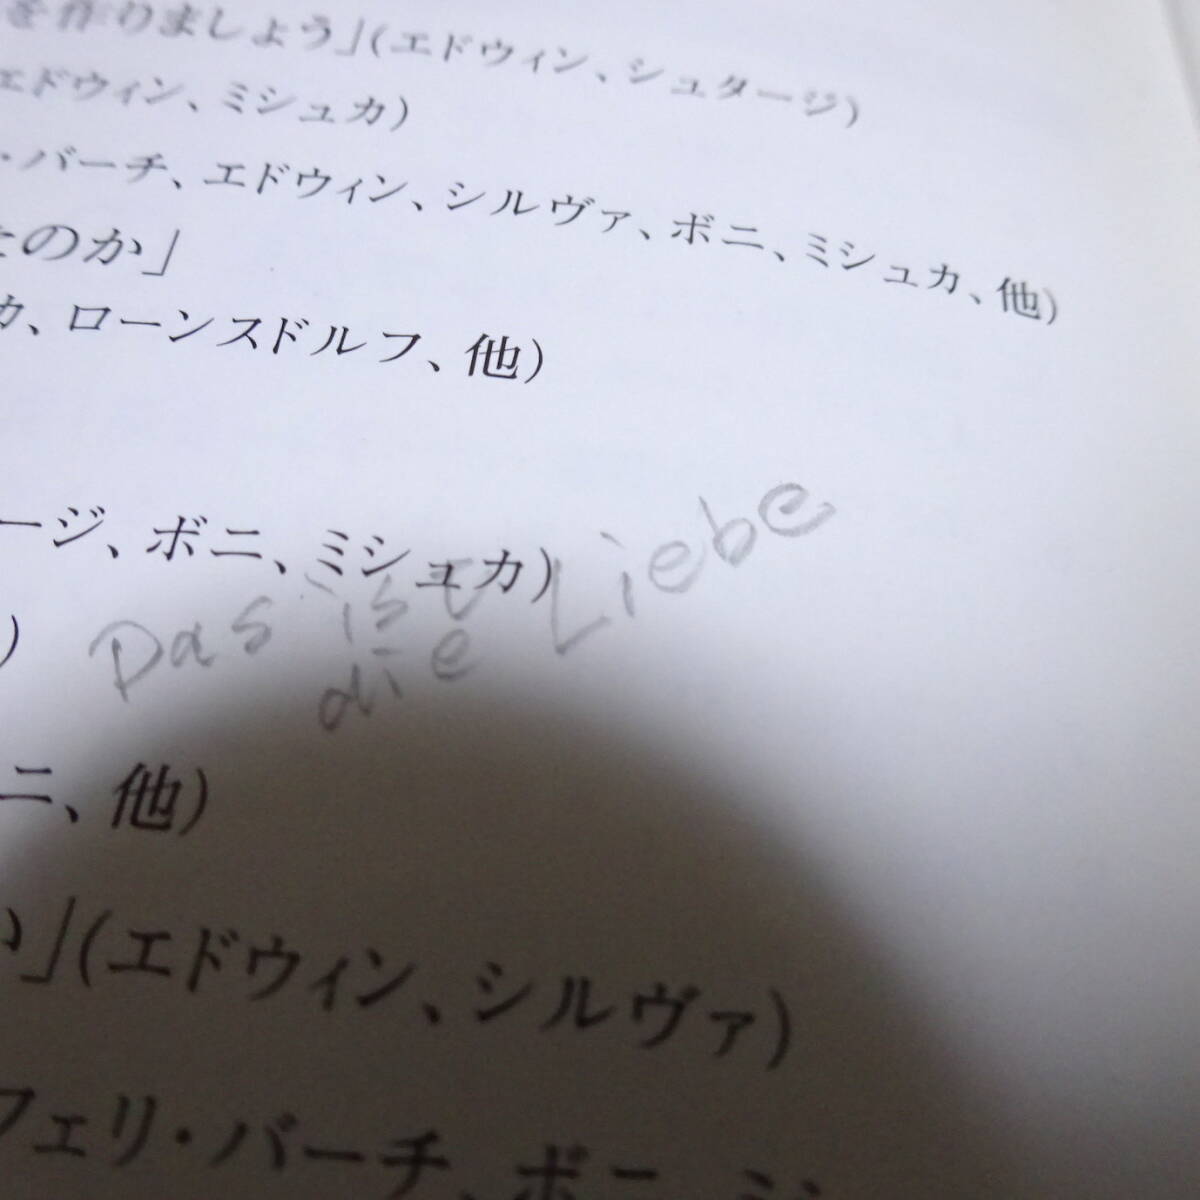 を作りましょう」(エドウィン、シュタージ)
エドウィン、ミシュカ)
・バーチ、エドウィン、シルヴァ、ボニ、ミシュカ、他)
たのか」
カ、ローンスドルフ、他)
ージ、ボニ、ミシュカ)
)
Das ist die Liebe
ニ、他)
い」(エドウィン、シルヴァ)
フェリ・バーチ、ボニ、ジ